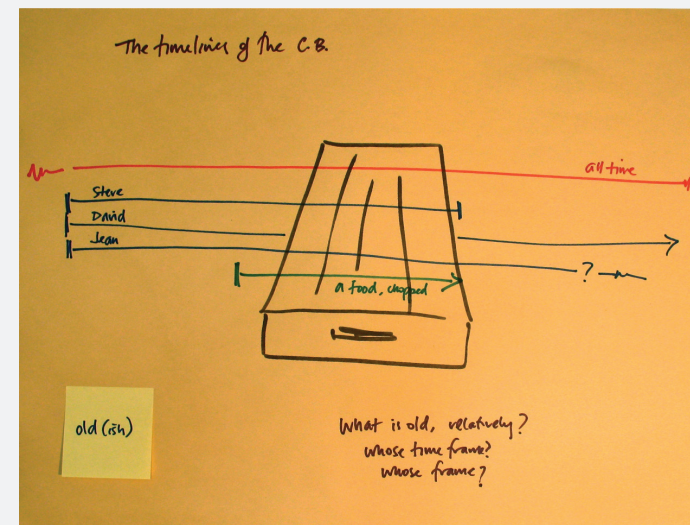 The timelines of the C.B.
all time
Steve
David
Jean
?
a food, chopped
old (ish)
What is old, relatively?
whose time frame?
whose frame?